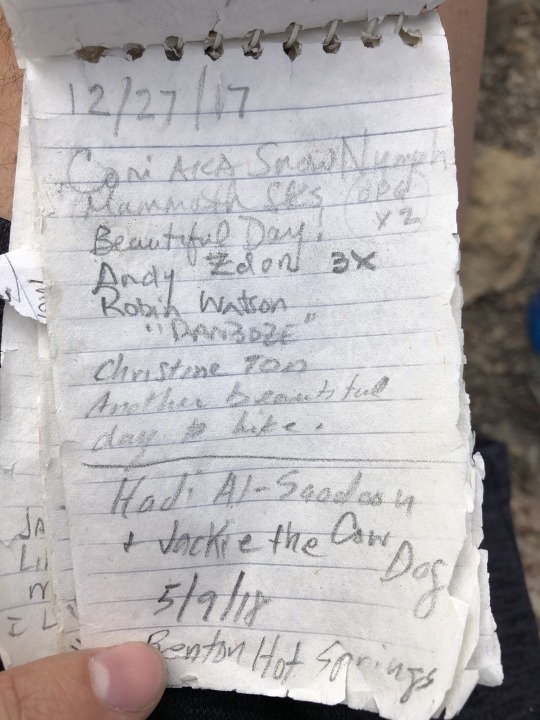 12/27/17
Cori AKA Snow Nymph
Mammoth Lks
x2
Beautiful Day!
Andy Zdon 3x
Robin Watson
"DANBOZE"
Christine Tan
Another beautiful
day to hike.
Hadi Al-Saadoon
+ Jackie the Cow
Dog
5/9/18
Benton Hot Springs
JA